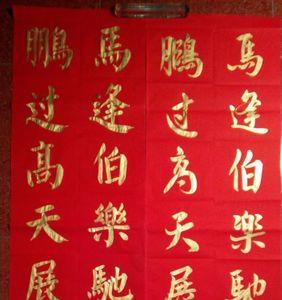 馬逢伯楽馳
鵬过高天展
馬逢伯樂馳
鵬過高天展